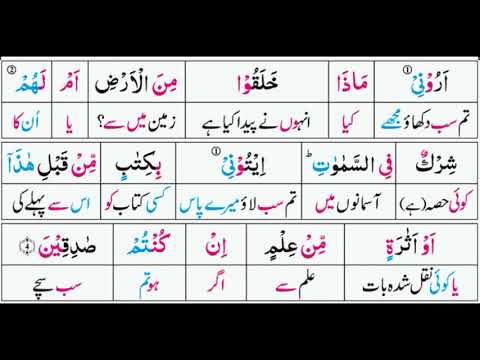 اَرُوْنِیْ ① مَاذَا خَلَقُوْا مِنَ الْاَرْضِ اَمْ لَهُمْ ②
تم سب دکھاؤ مجھے کیا انہوں نے پیدا کیا ہے زمین میں سے؟ یا اُن کا
شِرْكٌ فِی السَّمٰوٰتِ ؕ اِیْتُوْنِیْ ① بِكِتٰبٍ مِّنْ قَبْلِ هٰذَاۤ
کوئی حصہ (ہے) آسمانوں میں تم سب لاؤ میرے پاس کسی کتاب کو اس سے پہلے کی
اَوْ اَثٰرَةٍ مِّنْ عِلْمٍ اِنْ كُنْتُمْ صٰدِقِیْنَ ۴
یا کوئی نقل شدہ بات علم سے اگر ہو تم سب سچے